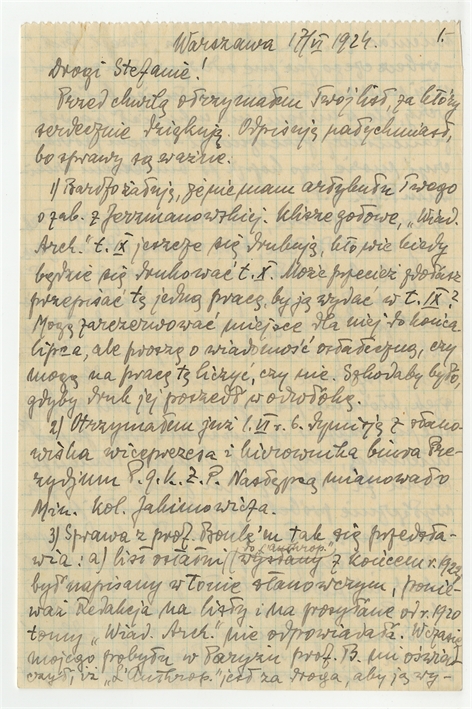 1.-
Warszawa 17/VI 1924.
Drogi Stefanie!
Przed chwilą otrzymałem Twój list, za który
serdecznie dziękuję. Odpisuję natychmiast,
bo sprawy są ważne.
1) Bardzo żałuję, że nie mam artykułu Twego
o zab. z Jerzmanowskiej. Klisze gotowe, „Wiad.
Arch." t. IX jeszcze się drukują, kto wie kiedy
będzie się drukować t. X. Może przecież zdołasz
przepisać tę jedną pracę, by ją wydać w t. IX?
Mogę zarezerwować miejsce dla niej do końca
lipca, ale proszę o wiadomość ostateczną, czy
mogę na pracę tę liczyć, czy nie. Szkodaby było,
gdyby druk jej poszedł w odwłokę.
2) Otrzymałem już 1.VI r. b. dymisję z stano-
wiska wiceprezesa i kierownika biura Pre-
zydjum P.g.K.Z.P. Następcą mianowało
Min. kol. Jakimowicza.
3) Sprawa z prof. Boule'm tak się przedsta-
wia: a) list ostatni (do „Anthrop.") wysłany z końcem r. 1922
był napisany w tonie stanowczym, ponie-
waż Redakcja na listy i na posyłane od r. 1920
tomy „Wiad. Arch." nie odpowiadała. Wczasie
mojego pobytu w Paryżu prof. B. mi oświad-
czył, iż „L'Anthrop." jest za droga, aby ją wy-